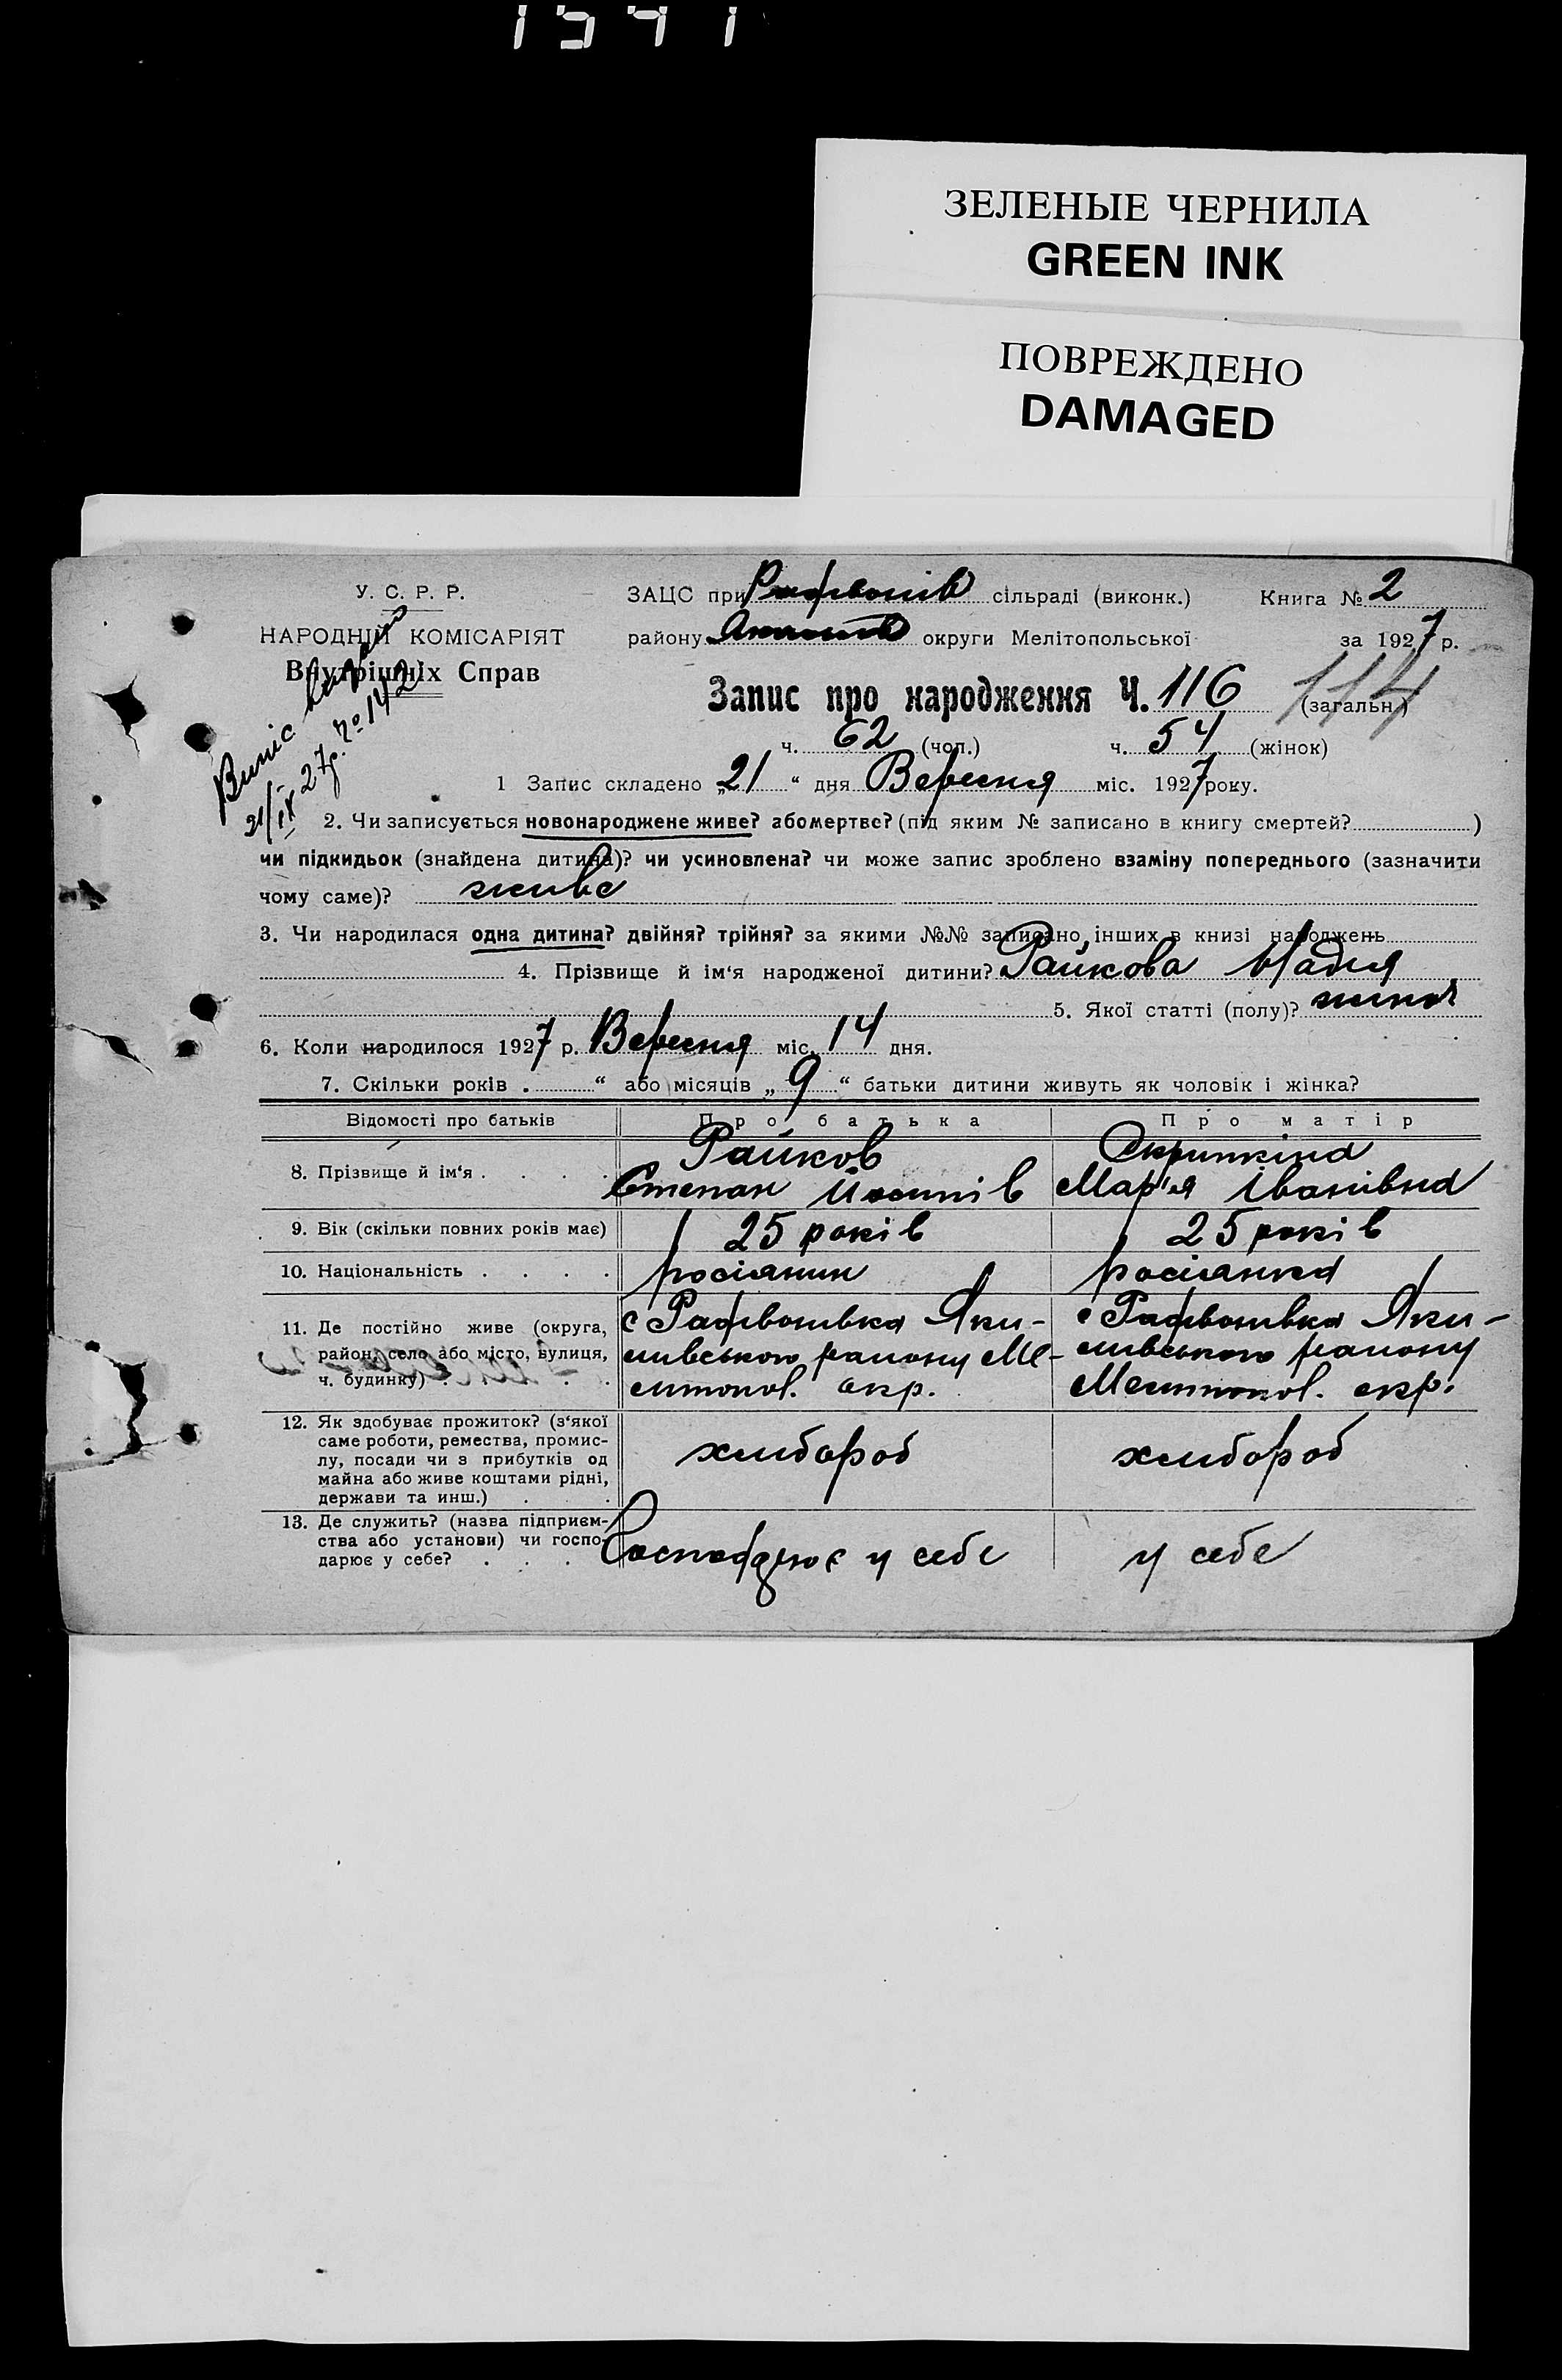 1541
ЗЕЛЕНЫЕ ЧЕРНИЛА
GREEN INK
ПОВРЕЖДЕНО
DAMAGED
У. С. Р. Р.
НАРОДНІЙ КОМІСАРІЯТ
Внутрішніх Справ
Випіс видано
21/IX 27р. № 142
ЗАЦС при Радівонів сільраді (виконк.) Книга № 2
району Якимів округи Мелітопольської за 1927 р.
Запис про народження Ч. 116 (загальн.) 114
ч. 62 (чол.) ч. 54 (жінок)
1 Запис складено „21“ дня Вересня міс. 1927 року.
2. Чи записується новонароджене живе? або мертве? (під яким № записано в книгу смертей? )
чи підкидьок (знайдена дитина)? чи усиновлена? чи може запис зроблено взаміну попереднього (зазначити
чому саме)? живе
3. Чи народилася одна дитина? двійня? трійня? за якими №№ записано інших в книзі народжень
4. Прізвище й ім‘я народженої дитини? Райкова Надія
5. Якої статті (полу)? жіноч
6. Коли народилося 1927 р. Вересня міс. 14 дня.
7. Скільки років . “ або місяців „9“ батьки дитини живуть як чоловік і жінка?
Відомості про батьків Про батька Про матір
8. Прізвище й ім‘я . . . . Райков Скрипкіна
Степан Йосипів Мар'я Іванівна
9. Вік (скільки повних років має) 25 років 25 років
10. Національність . . . . росіянин росіянка
11. Де постійно живе (округа, с Радівонівка Яки- с Радівонівка Яки-
район, село або місто, вулиця, мівського району Ме- мівського району
ч. будинку) . . . . літопол. окр. Мелітопол. окр.
12. Як здобуває прожиток? (з‘якої
саме роботи, ремества, промис-
лу, посади чи з прибутків од хлібороб хлібороб
майна або живе коштами рідні,
держави та инш.) . . .
13. Де служить? (назва підприєм-
ства або установи) чи госпо-
дарює у себе? . . . . Господарює у себе у себе